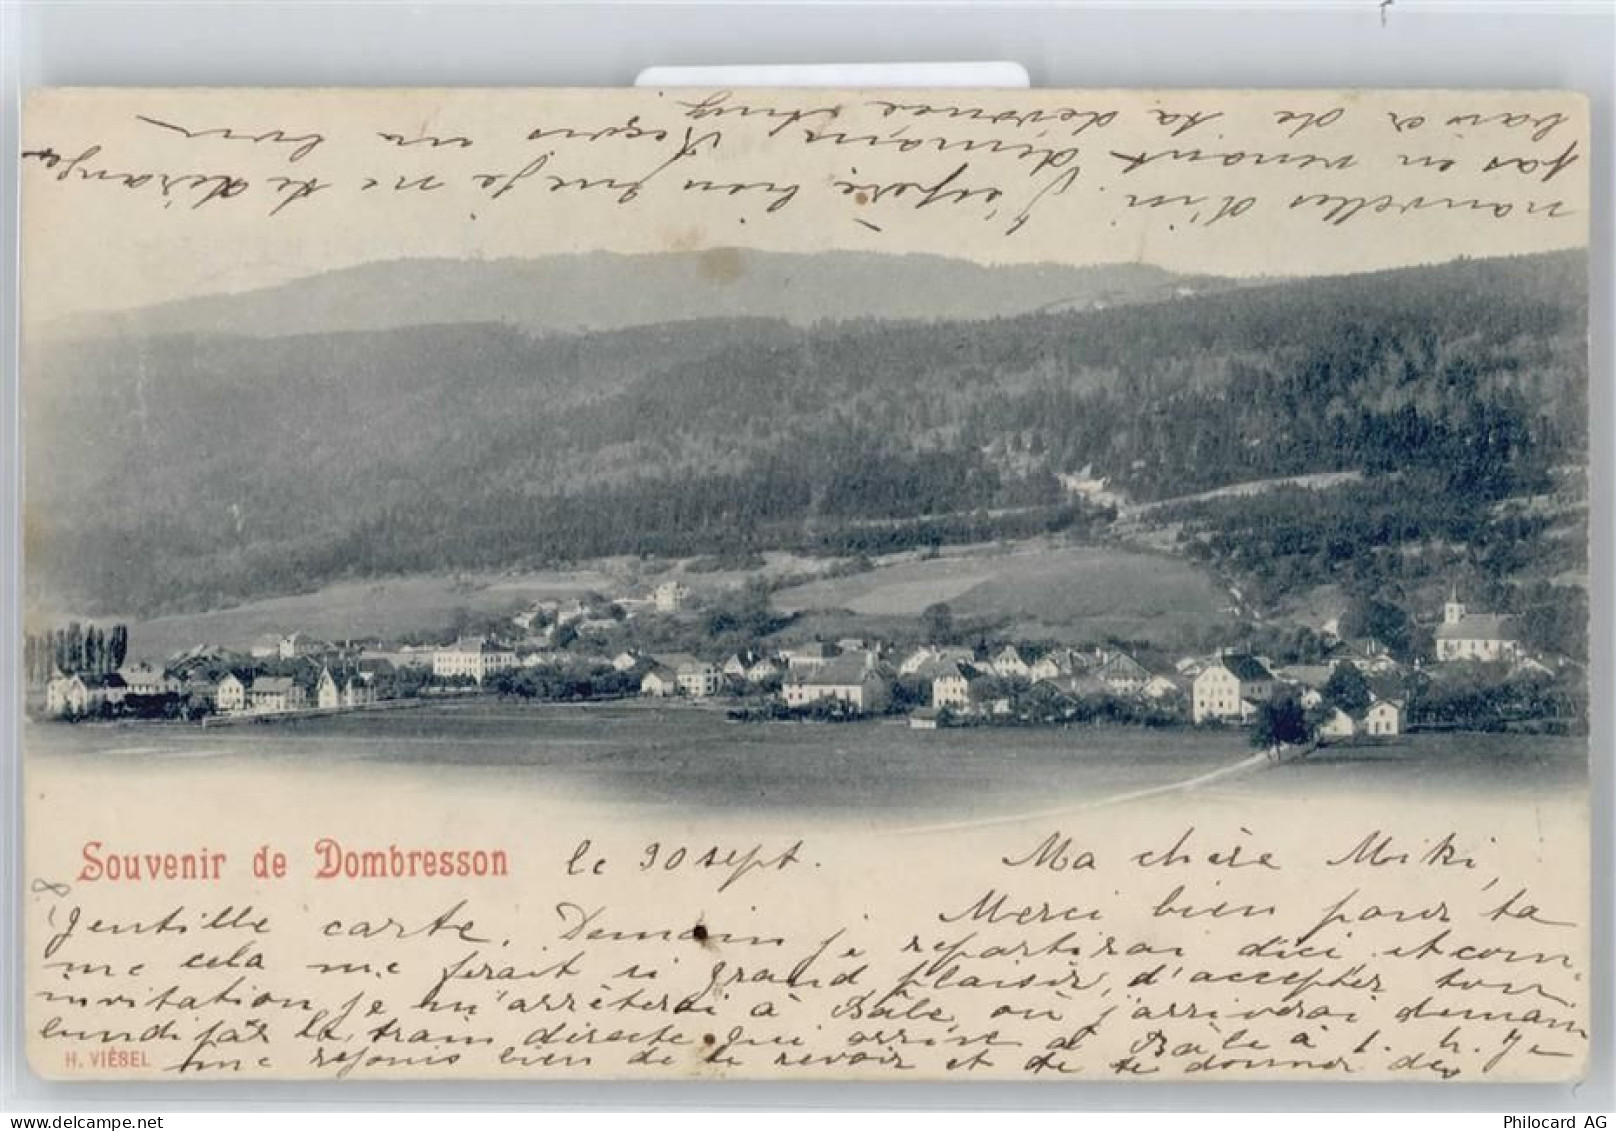 Souvenir de Dombresson
le 30 sept.
Ma chère Miki,
Merci bien pour ta
gentille carte. Demain je repartirai d'ici et com-
me cela me ferait si grand plaisir, d'accepter ton
invitation je m'arrêterai à Bâle où j'arriverai demain
lundi par le train directe qui arrive à Bâle à 1. h. Je
me rejouis bien de te revoir et de te donner des
H. VIÈBEL
nouvelles d'ici. J'espère bien que je ne te dérange
pas en venant demain. Reçois un bon
baiser de ta devouée
Philocard AG